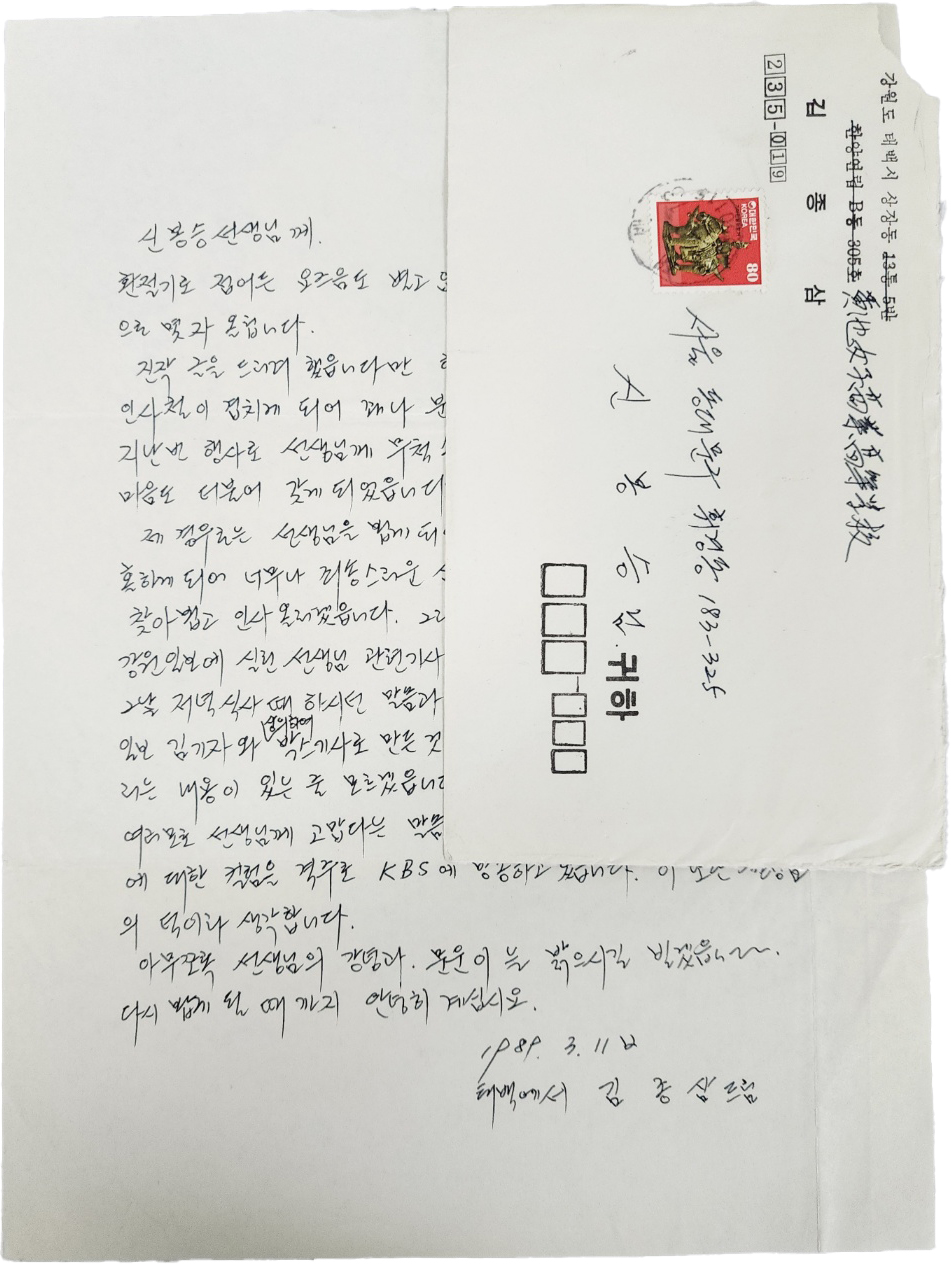 신봉승 선생님께.
환절기로 접어든 요즈음도 뵙고
으로 몇 자 올립니다.
진작 글을 드리려 했읍니다만
인사철이 겹치게 되어 꽤나 분
지난번 행사로 선생님께 무척
마음도 더불어 갖게 되었읍니다
제 경우로는 선생님을 뵙게 되어
혹하게 되어 너무나 죄송스러운
찾아뵙고 인사 올리겠읍니다. 그리
강원일보에 실린 선생님 관련기사
그날 저녁식사때 하시던 말씀과
일보 김기자와 상의하여 박스기사로 만든 것
라는 내용이 있는 줄 모르겠읍니다
여러모로 선생님께 고맙다는 말씀
에 대한 컬럼을 격주로 KBS에 방송하고 있읍니다. 이
의 덕이라 생각합니다.
아무쪼록 선생님의 강녕과 문운이 늘 밝으시길 빌겠읍니다.
다시 뵙게 될 때까지 안녕히 계십시오.
1989. 3. 11日
태백에서 김종삼드림
강원도 태백시 상장동 13통 5반
한양연립 B동 305호 黃池女子商業高等学校
김종삼
235-019
대한민국 KOREA 80
서울 동대문구 휘경동 183-325
신봉승 선. 귀하